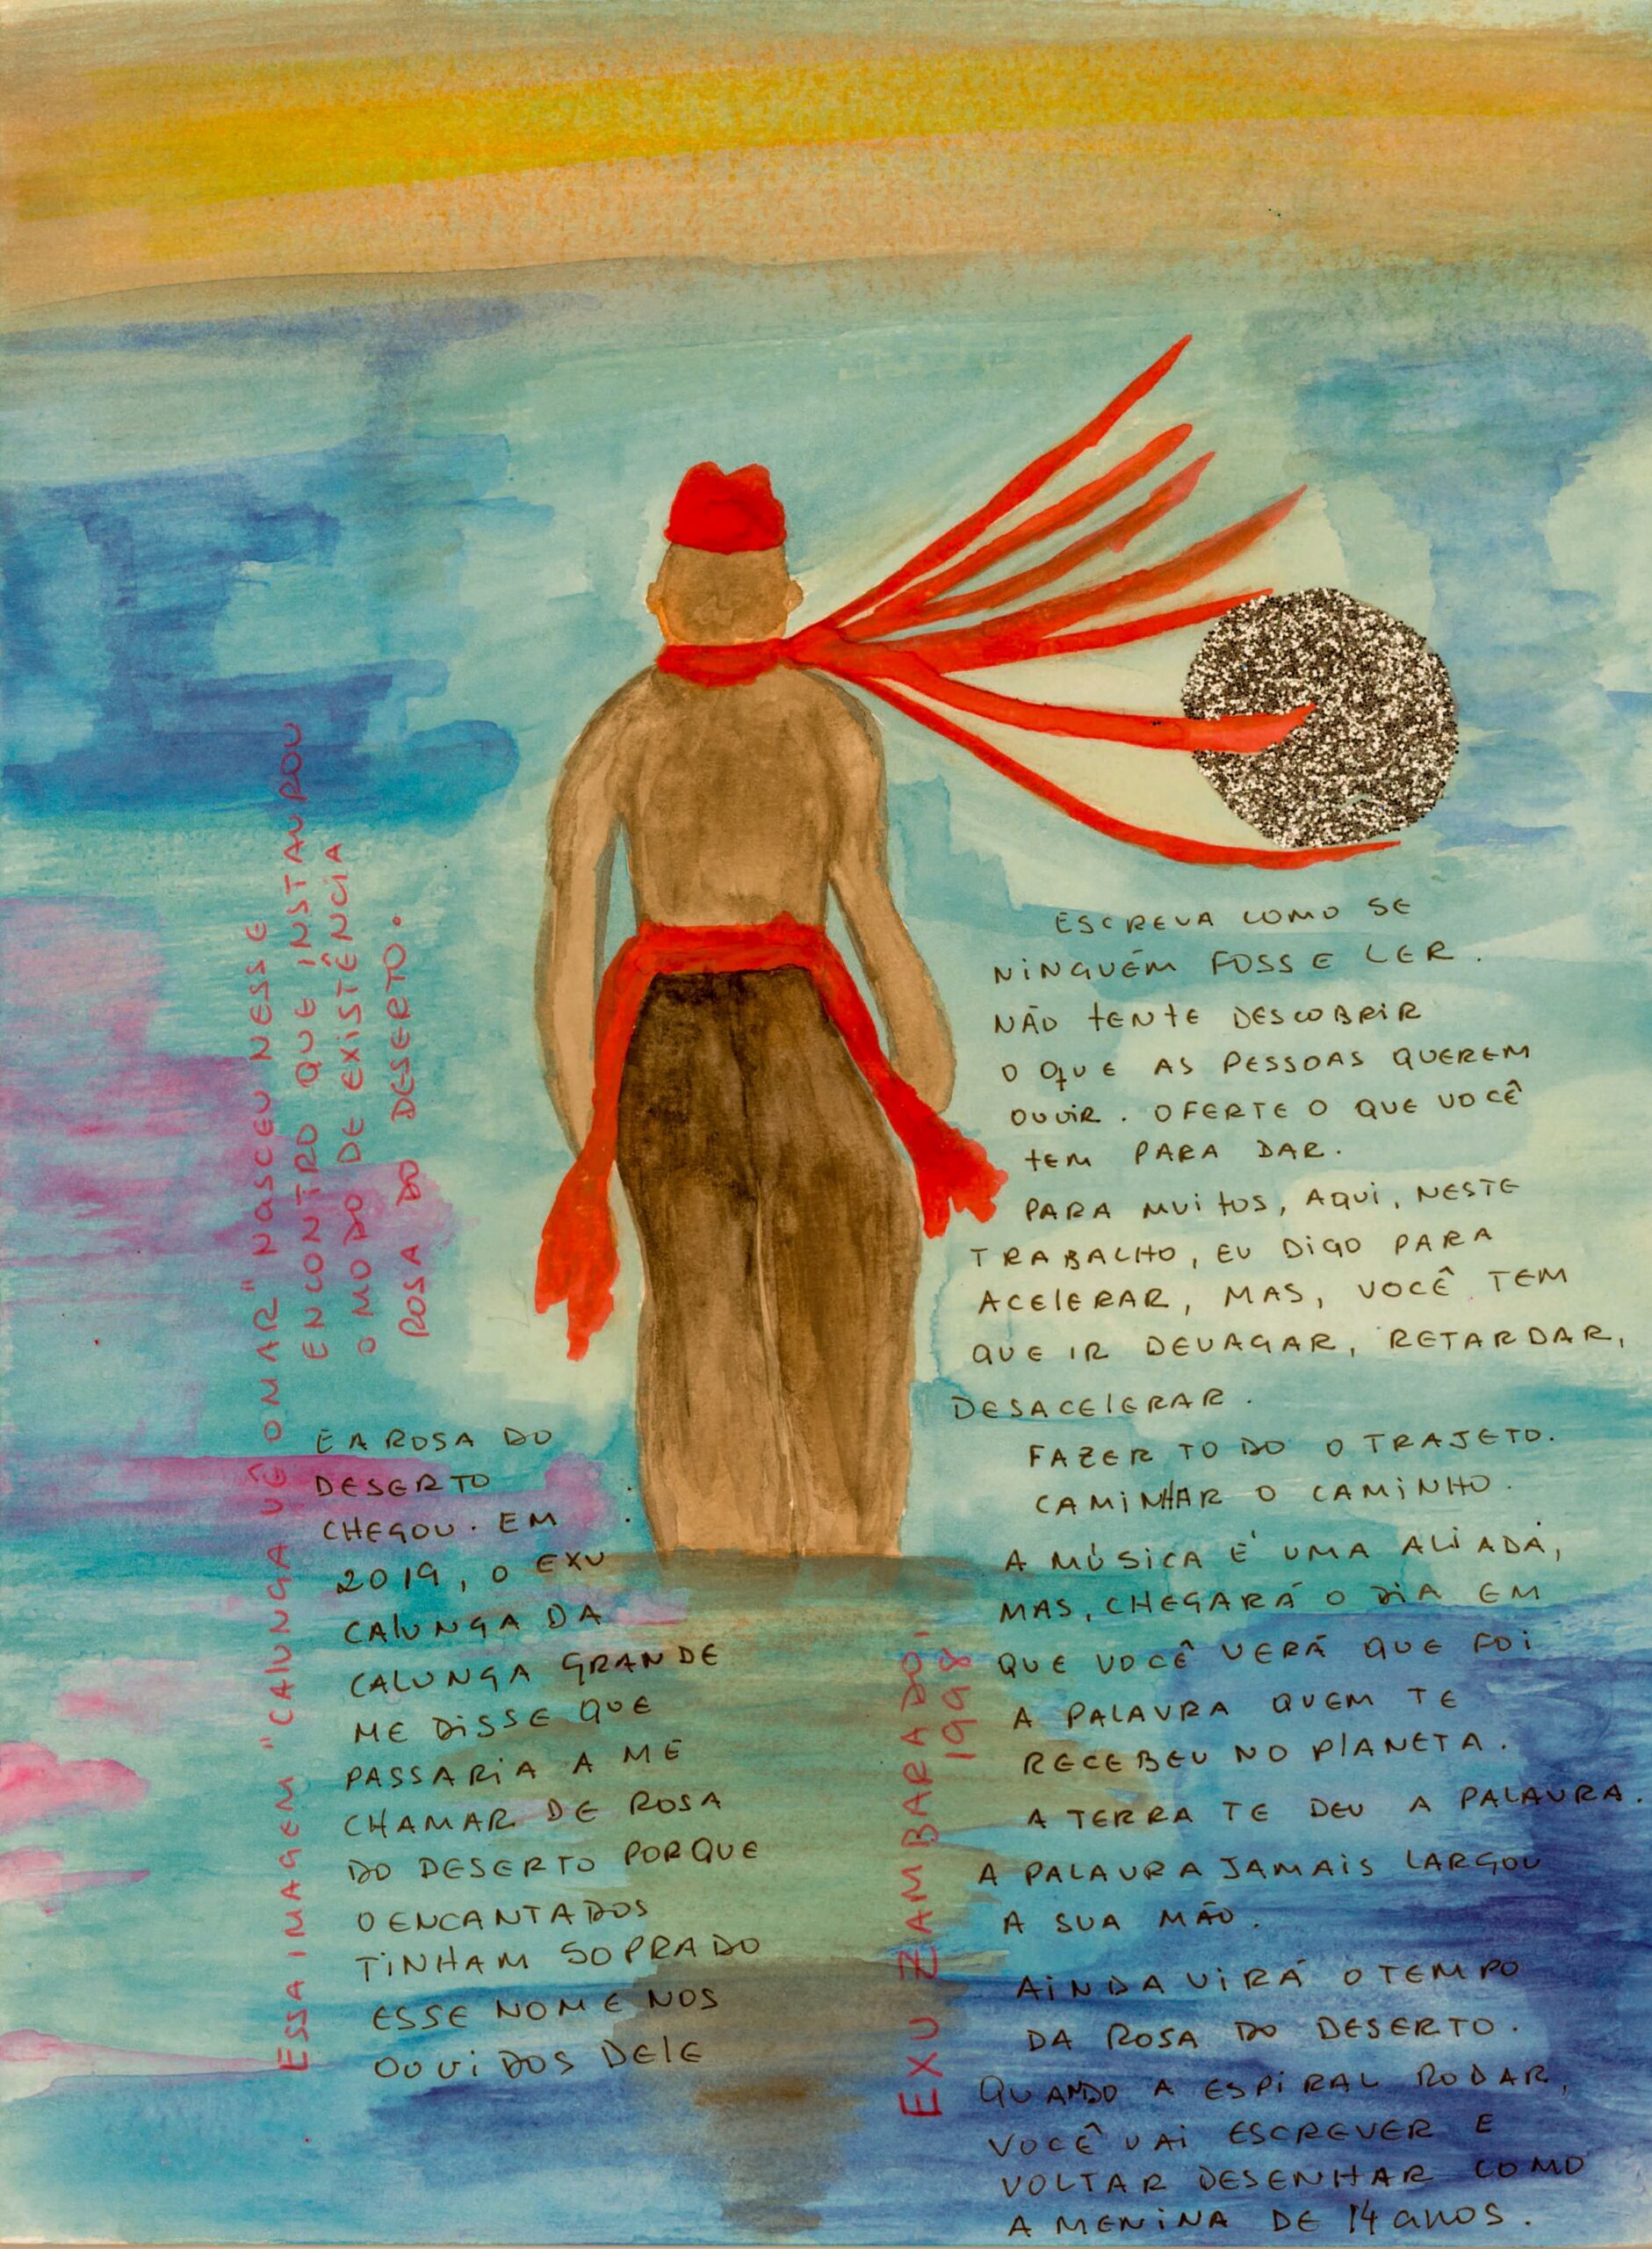 ESCREVA COMO SE
NINGUÉM FOSSE LER.
NÃO TENTE DESCOBRIR
O QUE AS PESSOAS QUEREM
OUVIR. OFERTE O QUE VOCÊ
TEM PARA DAR.
PARA MUITOS, AQUI, NESTE
TRABALHO, EU DIGO PARA
ACELERAR, MAS, VOCÊ TEM
QUE IR DEVAGAR, RETARDAR,
DESACELERAR.
FAZER TODO O TRAJETO.
CAMINHAR O CAMINHO.
A MÚSICA É UMA ALIADA,
MAS, CHEGARÁ O DIA EM
QUE VOCÊ VERÁ QUE FOI
A PALAVRA QUEM TE
RECEBEU NO PLANETA.
A TERRA TE DEU A PALAVRA.
A PALAVRA JAMAIS LARGOU
A SUA MÃO.
AINDA VIRÁ O TEMPO
DA ROSA DO DESERTO.
QUANDO A ESPIRAL RODAR,
VOCÊ VAI ESCREVER E
VOLTAR DESENHAR COMO
A MENINA DE 14 anos.
EXU ZAMBARADO,
1998
E A ROSA DO
DESERTO
CHEGOU. EM
2019, O EXU
CALUNGA DA
CALUNGA GRANDE
ME DISSE QUE
PASSARIA A ME
CHAMAR DE ROSA
DO DESERTO PORQUE
O ENCANTADOS
TINHAM SOPRADO
ESSE NOME NOS
OUVIDOS DELE
ESSA IMAGEM "CALUNGA VÊ O MAR" NASCEU NESSE
ENCONTRO QUE INSTAUROU
O MODO DE EXISTÊNCIA
ROSA DO DESERTO.